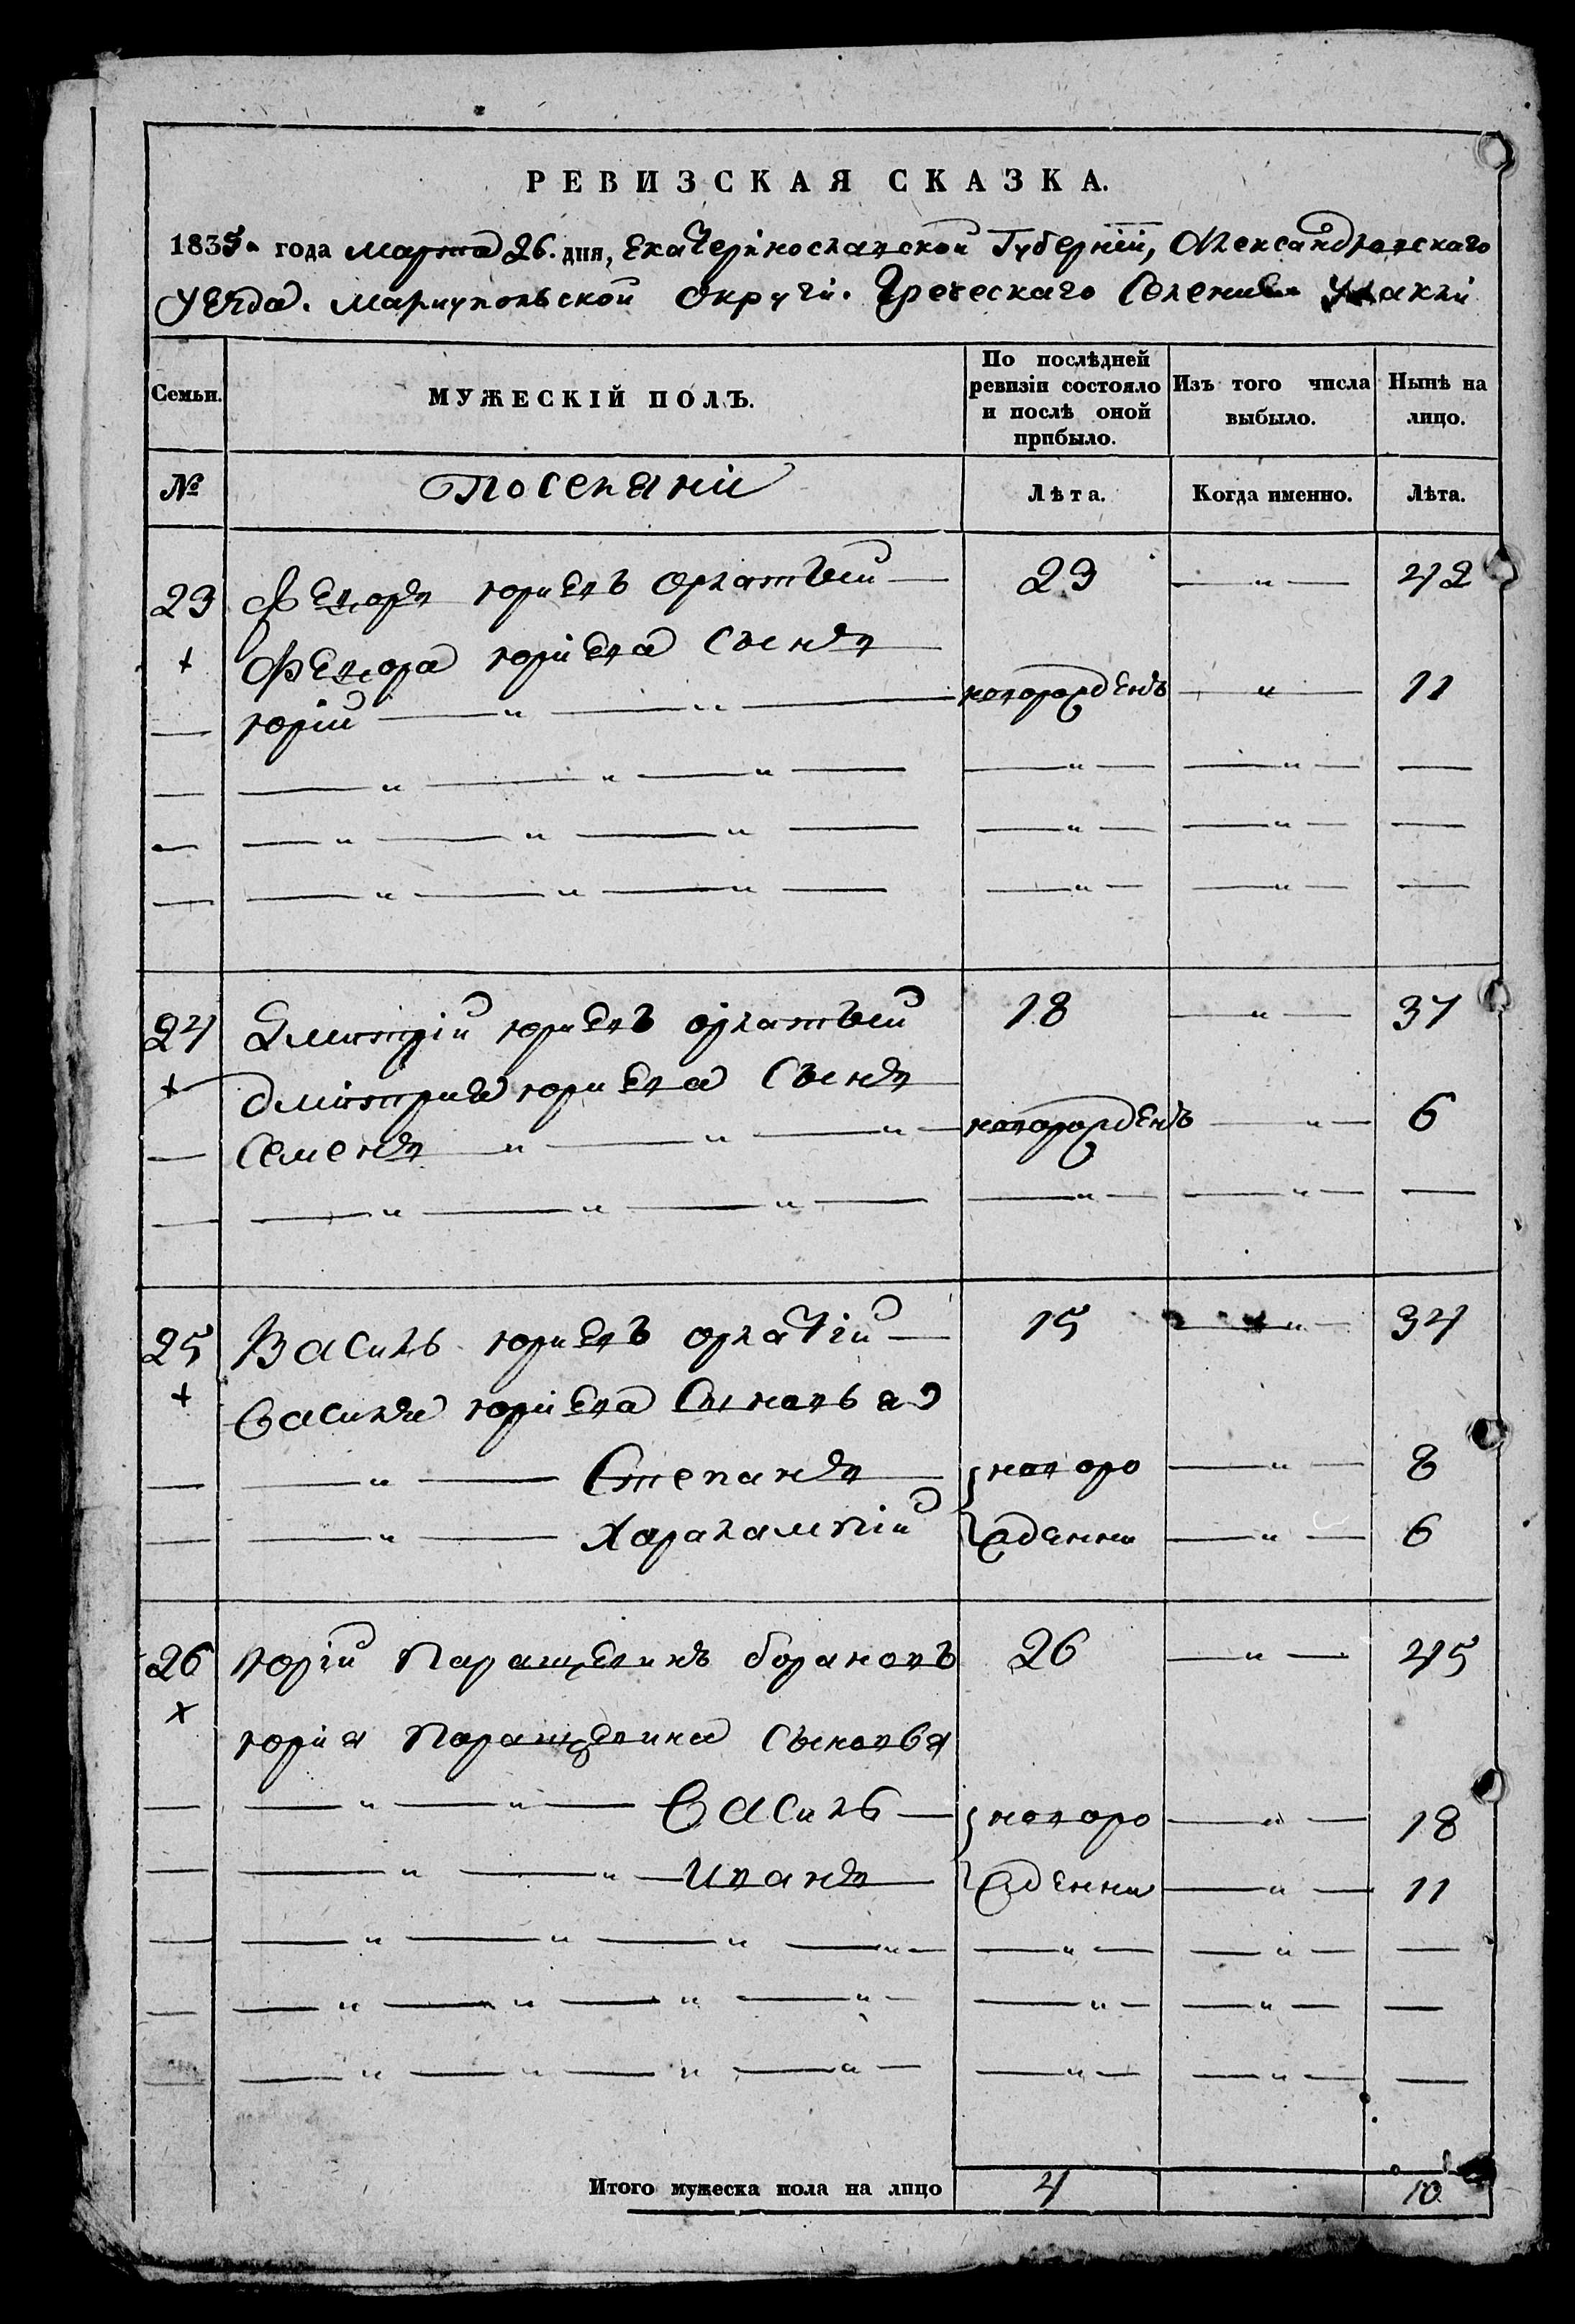 РЕВИЗСКАЯ СКАЗКА.
1835. года марта 26. дня, Екатеринославской Губерніи, Александровскаго
Уезда. Мариупольской Округи. Греческаго Селения
Семьи. МУЖЕСКІЙ ПОЛЪ. По послѣдней ревизіи состояло и послѣ оной прибыло. Изъ того числа выбыло. Нынѣ на лицо.
№ Поселяни Лѣта. Когда именно. Лѣта.
23 Федоръ юриевъ орлатый — 23 — „ — 42
+ Федора юріева Сынъ —
— юрій — „ — „ — новорожденъ — „ — 11
24 Дмитрій юриевъ орлатый 18 — „ — 37
+ дмитрия юриева Сынъ —
— Семенъ — „ — „ — „ — новорожденъ — „ — 6
25 Василь юриевъ орлатій — 15 — „ — 34
+ василя юріева Сыновья
— — „ — Степанъ — новоро — „ — 8
— — „ — Харалампій ждении — „ — 6
26 юрій Паращевинъ борановъ 26 — „ — 45
х юрия Паращевина Сыновья
— — „ — „ — Василь — новоро — „ — 18
— — „ — „ — Иванъ — ждении — „ — 11
Итого мужеска пола на лицо 4 10